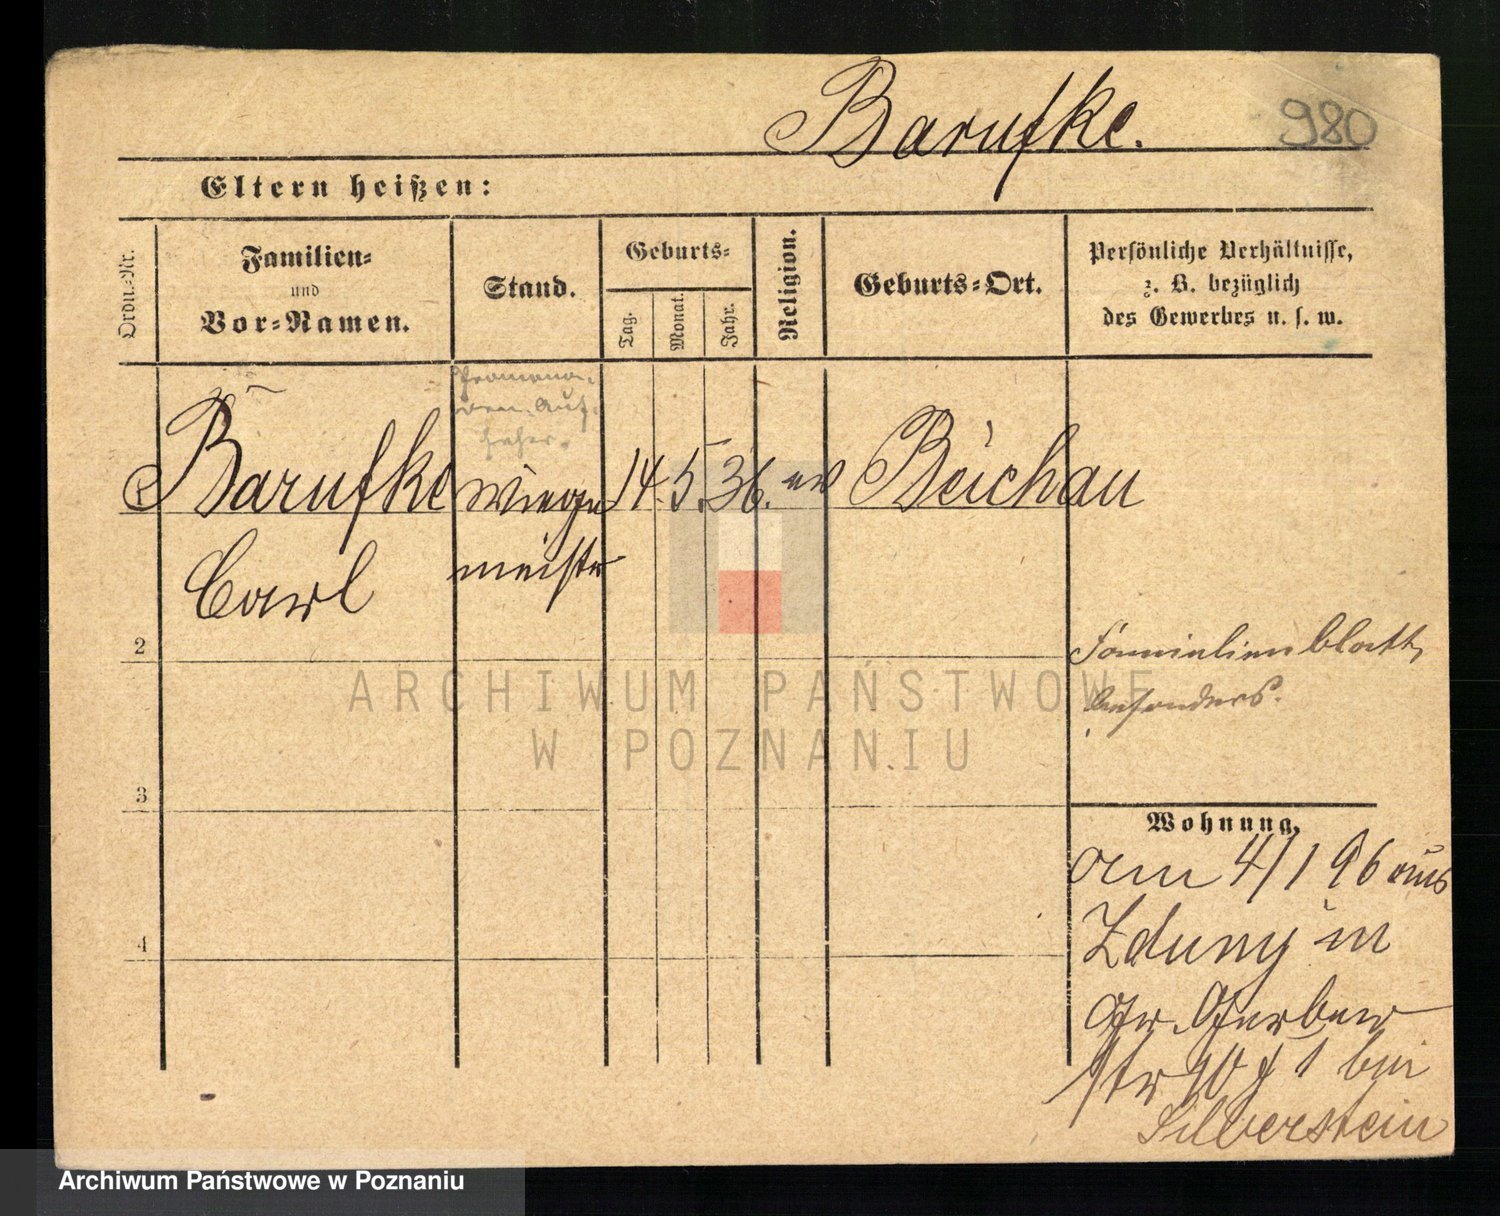 Barufke.
980
Eltern heißen:
Ordn.-Nr.
Familien-
und
Vor-Namen.
Stand.
Geburts-
Tag.
Monat.
Jahr.
Religion.
Geburts-Ort.
Persönliche Verhältnisse,
z. B. bezüglich
des Gewerbes u. s. w.
Promena-
den-Auf-
seher.
1 Barufke Wiege 14. 5. 36. ev Beichau
Carl meister
2
Familienblatt
besonders.
ARCHIWUM PAŃSTWOWE
W POZNANIU
3
Wohnung.
am 4/1 96 aus
Zduny in
Gr. Gerber
str 40 I bei
Silberstein
4
Archiwum Państwowe w Poznaniu